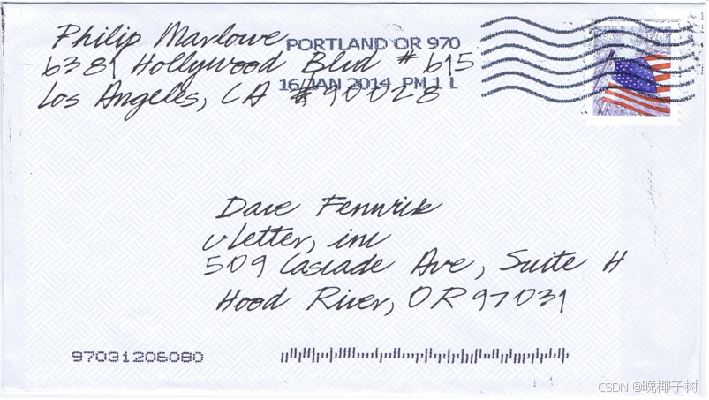 Philip Marlowe
PORTLAND OR 970
6381 Hollywood Blvd # 615
16 JAN 2014 PM 1 L
Los Angeles, CA #90028
Dave Fennrick
vLetter, inc
509 Cascade Ave, Suite H
Hood River, OR 97031
97031206080
CSDN @晚椰子树